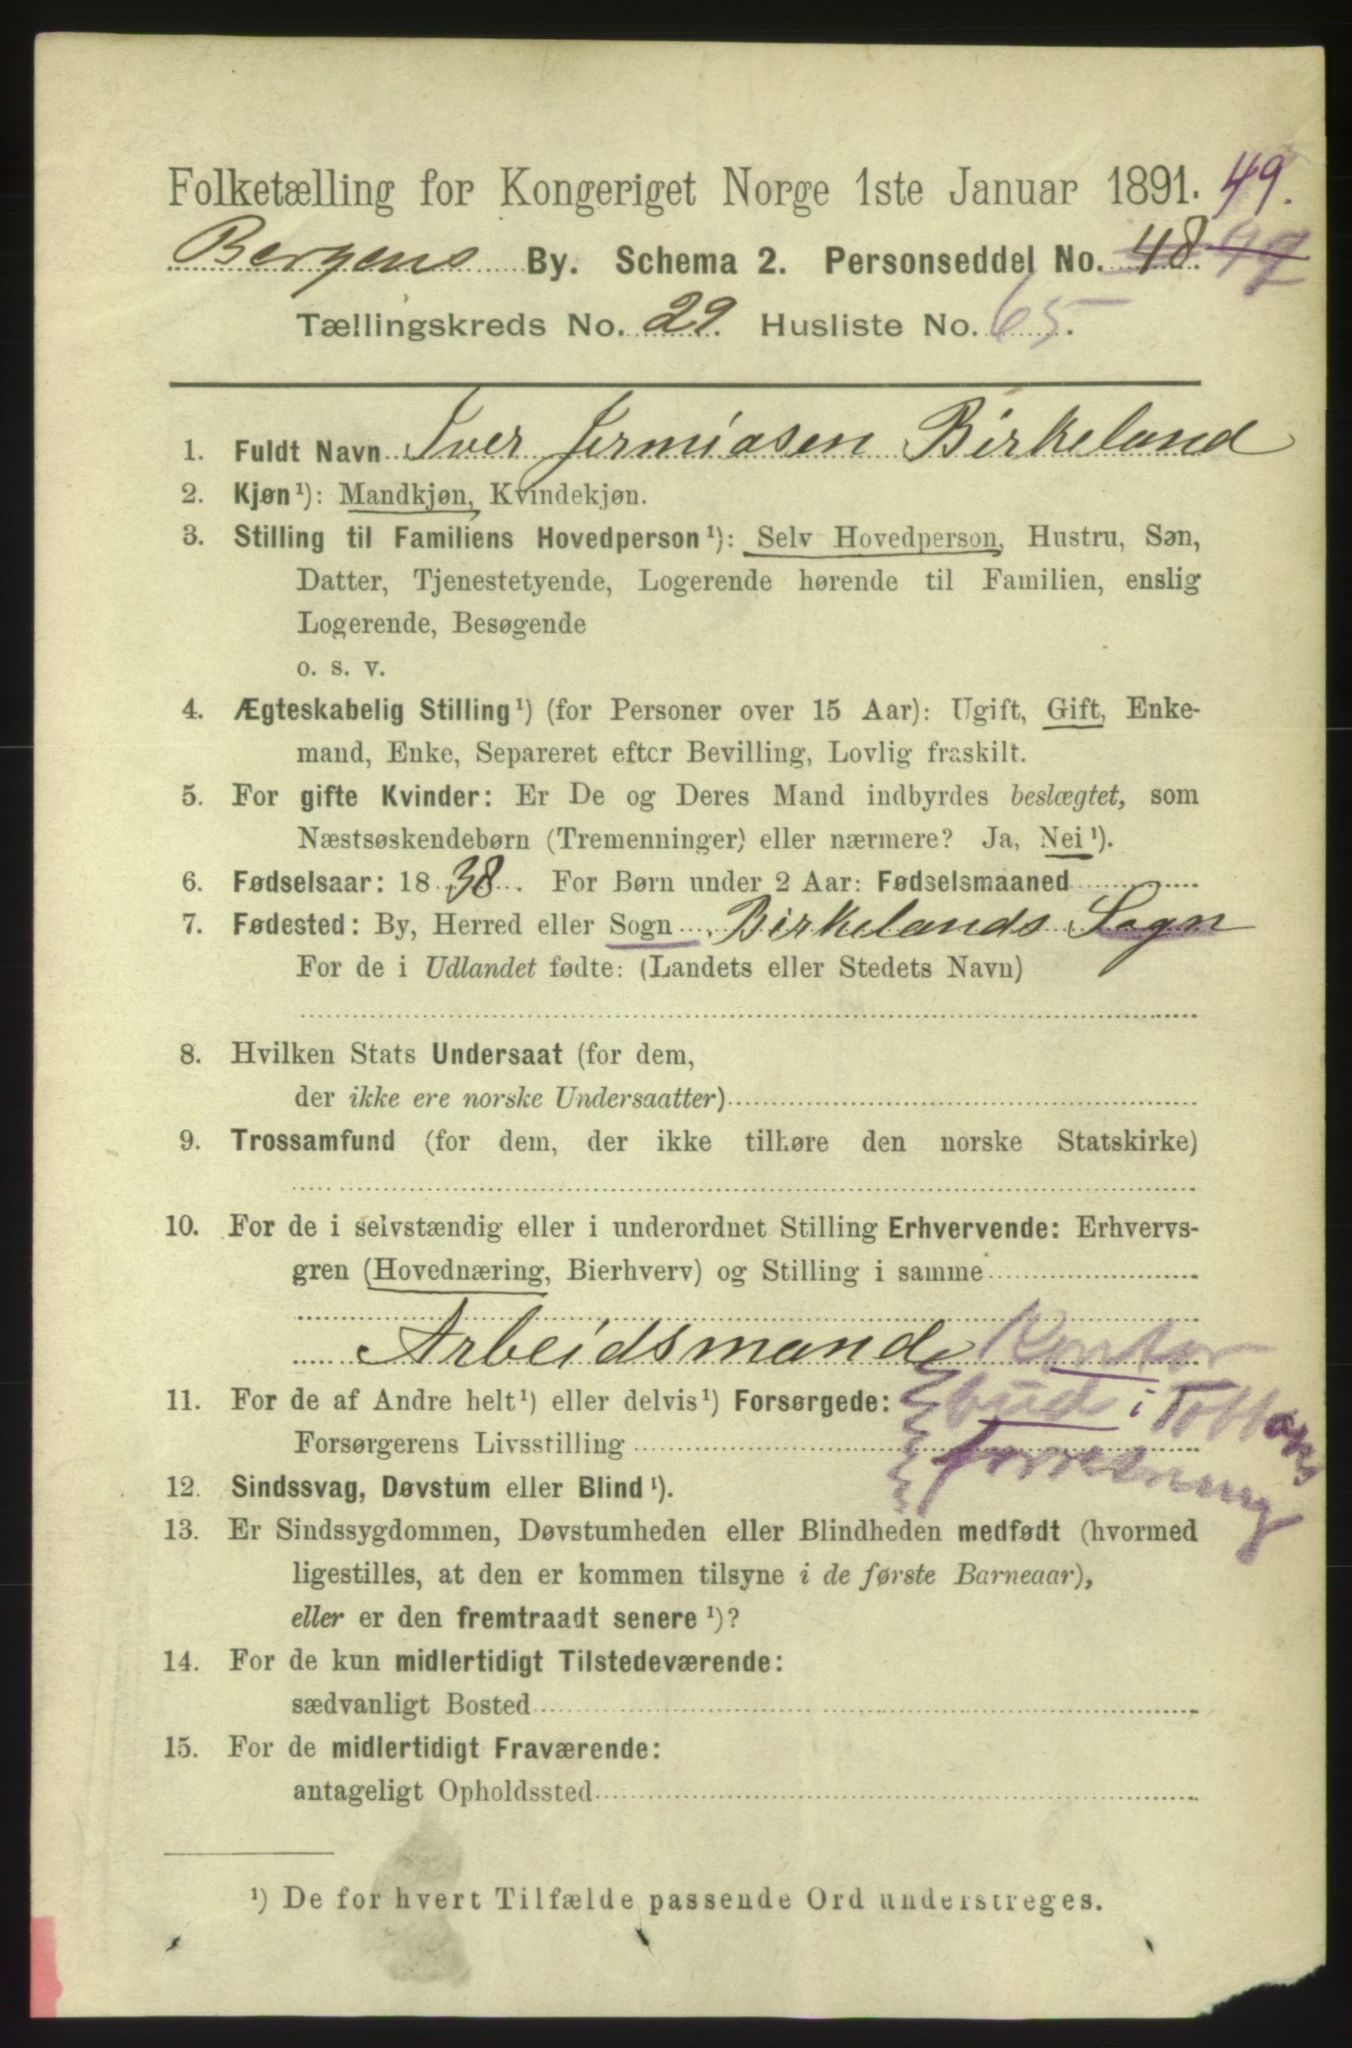 Folketælling for Kongeriget Norge 1ste Januar 1891. 49.
Bergens By. Schema 2. Personseddel No. 48. 49
Tællingskreds No. 29. Husliste No. 65.
1. Fuldt Navn Iver Jermiasen Birkeland
2. Kjøn¹): Mandkjøn, Kvindekjøn.
3. Stilling til Familiens Hovedperson¹): Selv Hovedperson, Hustru, Søn,
Datter, Tjenestetyende, Logerende hørende til Familien, enslig
Logerende, Besøgende
o. s. v.
4. Ægteskabelig Stilling¹) (for Personer over 15 Aar): Ugift, Gift, Enke-
mand, Enke, Separeret efter Bevilling, Lovlig fraskilt.
5. For gifte Kvinder: Er De og Deres Mand indbyrdes beslægtet, som
Næstsøskendebørn (Tremenninger) eller nærmere? Ja, Nei¹).
6. Fødselsaar: 1838. For Børn under 2 Aar: Fødselsmaaned
7. Fødested: By, Herred eller Sogn Birkelands Sogn
For de i Udlandet fødte: (Landets eller Stedets Navn)
8. Hvilken Stats Undersaat (for dem,
der ikke ere norske Undersaatter)
9. Trossamfund (for dem, der ikke tilhøre den norske Statskirke)
10. For de i selvstændig eller i underordnet Stilling Erhvervende: Erhvervs-
gren (Hovednæring, Bierhverv) og Stilling i samme
Arbeidsmand Kontor
11. For de af Andre helt¹) eller delvis¹) Forsørgede: bud i Tobbaks
Forsørgerens Livsstilling forretning
12. Sindssvag, Døvstum eller Blind¹).
13. Er Sindssygdommen, Døvstumheden eller Blindheden medfødt (hvormed
ligestilles, at den er kommen tilsyne i de første Barneaar),
eller er den fremtraadt senere¹)?
14. For de kun midlertidigt Tilstedeværende:
sædvanligt Bosted
15. For de midlertidigt Fraværende:
antageligt Opholdssted
¹) De for hvert Tilfælde passende Ord understreges.